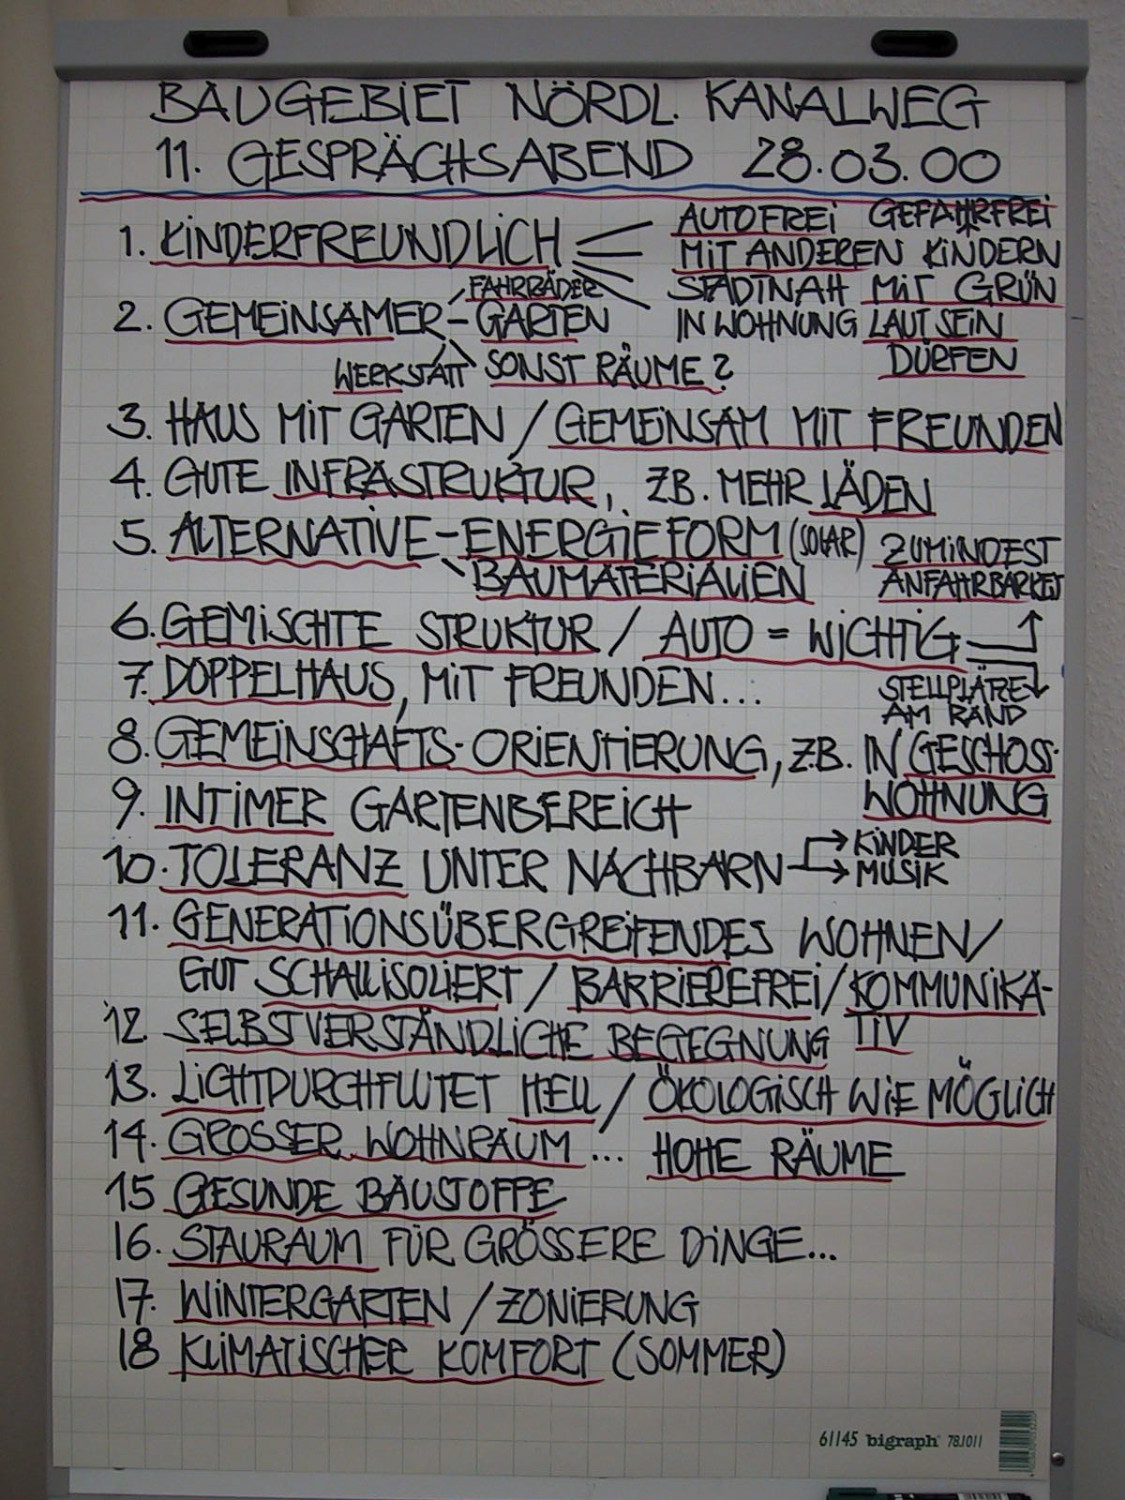 BAUGEBIET NÖRDL. KANALWEG
11. GESPRÄCHSABEND 28.03.00
1. KINDERFREUNDLICH
AUTOFREI GEFAHRFREI
MIT ANDEREN KINDERN
STADTNAH MIT GRÜN
IN WOHNUNG LAUT SEIN
DÜRFEN
FAHRRÄDER
2. GEMEINSAMER - GARTEN
WERKSTATT SONST RÄUME?
3. HAUS MIT GARTEN / GEMEINSAM MIT FREUNDEN
4. GUTE INFRASTRUKTUR, ZB. MEHR LÄDEN
5. ALTERNATIVE - ENERGIEFORM (SOLAR)
BAUMATERIALIEN
ZUMINDEST
ANFAHRBARKEIT
6. GEMISCHTE STRUKTUR / AUTO = WICHTIG
STELLPLÄTZE
AM RAND
7. DOPPELHAUS, MIT FREUNDEN...
8. GEMEINSCHAFTS-ORIENTIERUNG, ZB. IN GESCHOSS-
WOHNUNG
9. INTIMER GARTENBEREICH
10. TOLERANZ UNTER NACHBARN → KINDER
→ MUSIK
11. GENERATIONSÜBERGREIFENDES WOHNEN /
GUT SCHALLISOLIERT / BARRIEREFREI / KOMMUNIKA-
TIV
12. SELBSTVERSTÄNDLICHE BEGEGNUNG
13. LICHTDURCHFLUTET HELL / ÖKOLOGISCH WIE MÖGLICH
14. GROSSER WOHNRAUM... HOHE RÄUME
15 GESUNDE BAUSTOFFE
16. STAURAUM FÜR GRÖSSERE DINGE...
17. WINTERGARTEN / ZONIERUNG
18 KLIMATISCHER KOMFORT (SOMMER)
61145 bigraph 781011